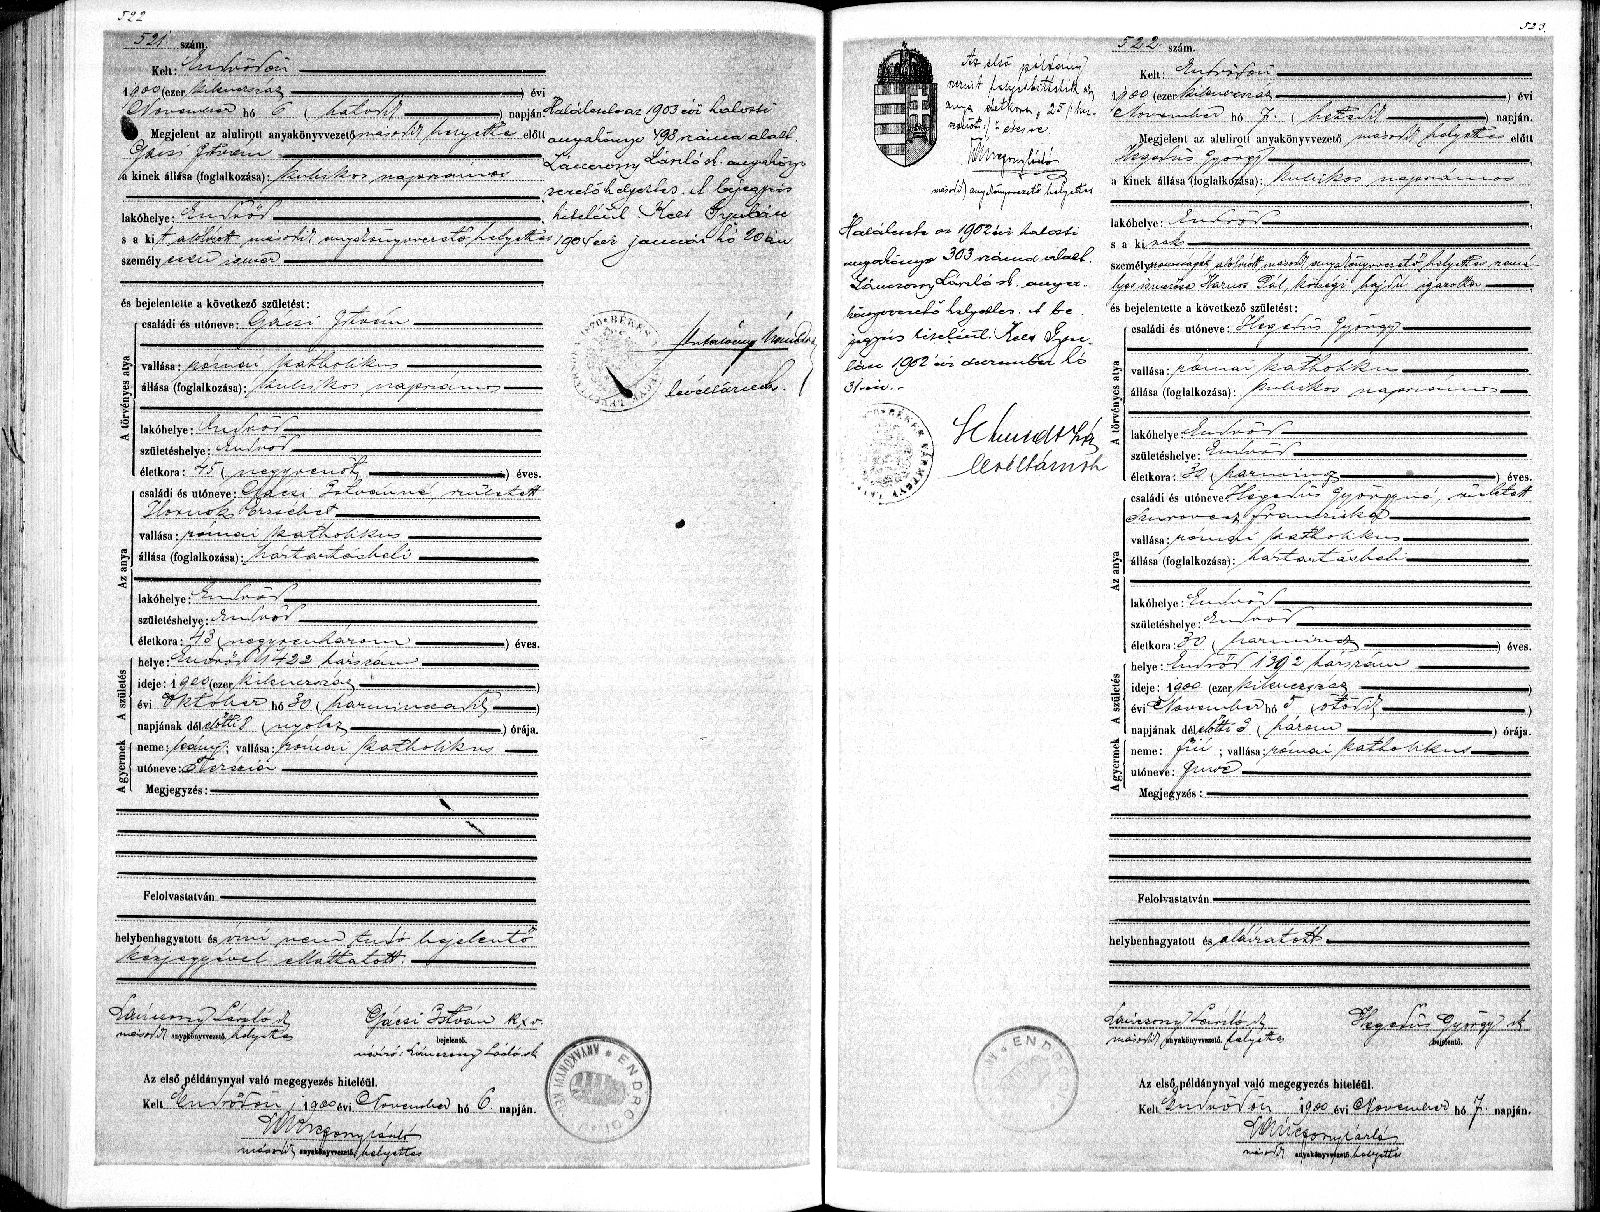 522
521 szám.
Kelt: Endrődön
1900 (ezer kilencszáz) évi
November hó 6 (hatodik) napján.
Megjelent az alulirott anyakönyvvezető második helyettes előtt
Gácsi István
a kinek állása (foglalkozása): kubikos napszámos
lakóhelye: Endrőd
s a kit alólirott második anyakönyvvezető helyettes
személyesen ismer
és bejelentette a következő születést:
A törvényes atya
családi és utóneve: Gácsi István
vallása: római katholikus
állása (foglalkozása): kubikos napszámos
lakóhelye: Endrőd
születéshelye: Endrőd
életkora: 45 (negyvenöt) éves.
Az anya
családi és utóneve: Gácsi Istvánné született
Hornok Erzsébet
vallása: római katholikus
állása (foglalkozása): háztartásbeli
lakóhelye: Endrőd
születéshelye: Endrőd
életkora: 43 (negyvenhárom) éves.
A születés
helye: Endrőd 1422 házszám
ideje: 1900 (ezer kilencszáz)
évi Október hó 30 (harmincadik)
napjának dél előtti 8 (nyolcz) órája.
A gyermek
neme: leány; vallása: római katholikus
utóneve: Terézia
Megjegyzés:
Felolvastatván
helybenhagyatott és irni nem tudó bejelentő
kézjegyével elláttatott.
Lánczony László sk
második anyakönyvvezető helyettes
Gácsi István kxv.
bejelentő.
névíró: Lánczony László sk
Az első példánynyal való megegyezés hiteléül.
Kelt Endrődön, 1900 évi November hó 6 napján.
Lánczony László
második anyakönyvvezető helyettes
Halálesete az 1903 évi halotti
anyakönyv 493 száma alatt.
Lánczony László sk. anyakönyv
vezető helyettes. A bejegyzés
hiteléül Kelt Gyulán
1904 évi január hó 20án
levéltárnok.
523.
Az első példány
szerint helyesbittetik az
anya életkora, "25 /:huszonöt:/" évesre.
Lánczony László
második anyakönyvvezető helyettes
Halálesete az 1902 évi halotti
anyakönyv 303 száma alatt.
Lánczony László sk. anya-
könyvvezető helyettes. A be-
jegyzés hiteléül. Kelt Gyu-
lán 1902 évi deczember hó
31-én.
levéltárnok
522 szám.
Kelt: Endrődön
1900 (ezer kilencszáz) évi
November hó 7. (hetedik) napján.
Megjelent az alulirott anyakönyvvezető második helyettes előtt
Hegedüs György
a kinek állása (foglalkozása): kubikos napszámos
lakóhelye: Endrőd
s a kinek
személyazonosságát alólirott második anyakönyvvezető helyettes szemé-
lyes ismerőse Harus Pál községi hajdu igazolta
és bejelentette a következő születést:
A törvényes atya
családi és utóneve: Hegedüs György
vallása: római katholikus
állása (foglalkozása): kubikos napszámos
lakóhelye: Endrőd
születéshelye: Endrőd
életkora: 30 (harmincz) éves.
Az anya
családi és utóneve: Hegedüs Györgyné, született
Szurovecz Franciska
vallása: római katholikus
állása (foglalkozása): háztartásbeli
lakóhelye: Endrőd
születéshelye: Endrőd
életkora: 30 (harmincz) éves.
A születés
helye: Endrőd 1392 házszám
ideje: 1900 (ezer kilencszáz)
évi November hó 5 (ötödik)
napjának dél előtti 3 (három) órája.
A gyermek
neme: fiú; vallása: római katholikus
utóneve: Imre
Megjegyzés:
Felolvastatván
helybenhagyatott és aláiratott
Lánczony László sk
második anyakönyvvezető helyettes
Hegedüs György sk
bejelentő.
Az első példánynyal való megegyezés hiteléül.
Kelt Endrődön 1900 évi November hó 7. napján.
Lánczony László
második anyakönyvvezető helyettes